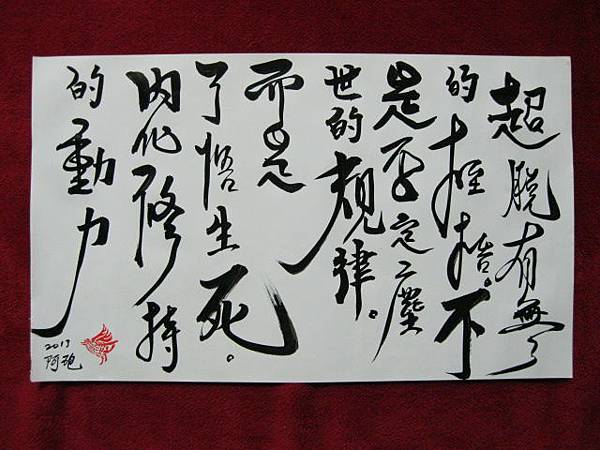 超脫有無
的桎梏。不
是否定塵
世的規律。
而是
了悟生死。
內化修持
的動力
2013
阿砲